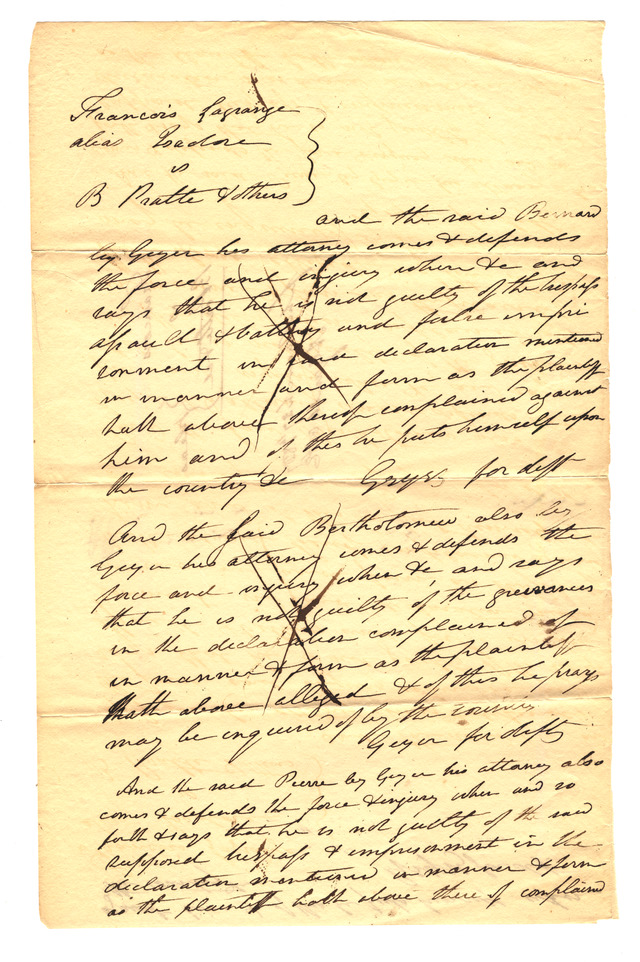 Francois Lagrange
alias Isadore
vs
B Pratte & others
and the said Bernard
by Geyer his attorney comes & defends
the force and injury when &c and
says that he is not guilty of the trespass
assault & battery and false impri
sonment in said declaration mentioned
in manner and form as the plaintiff
hath above thereof complained against
him and of this he puts himself upon
the country &c Geyer for deft
And the said Bartholomew also by
Geyer his attorney comes & defends the
force and injury when &c and says
that he is not guilty of the greivances
in the declaration complained of
in manner & form as the plaintiff
hath above alleged & of this he prays
may be enquired of by the country
Geyer for defts
And the said Pierre by Geyer his attorney also
comes & defends the force & injury when and so
forth & says that he is not guilty of the said
supposed trespass & imprisonment in the
declaration mentioned in manner & form
as the plaintiff hath above there of complained